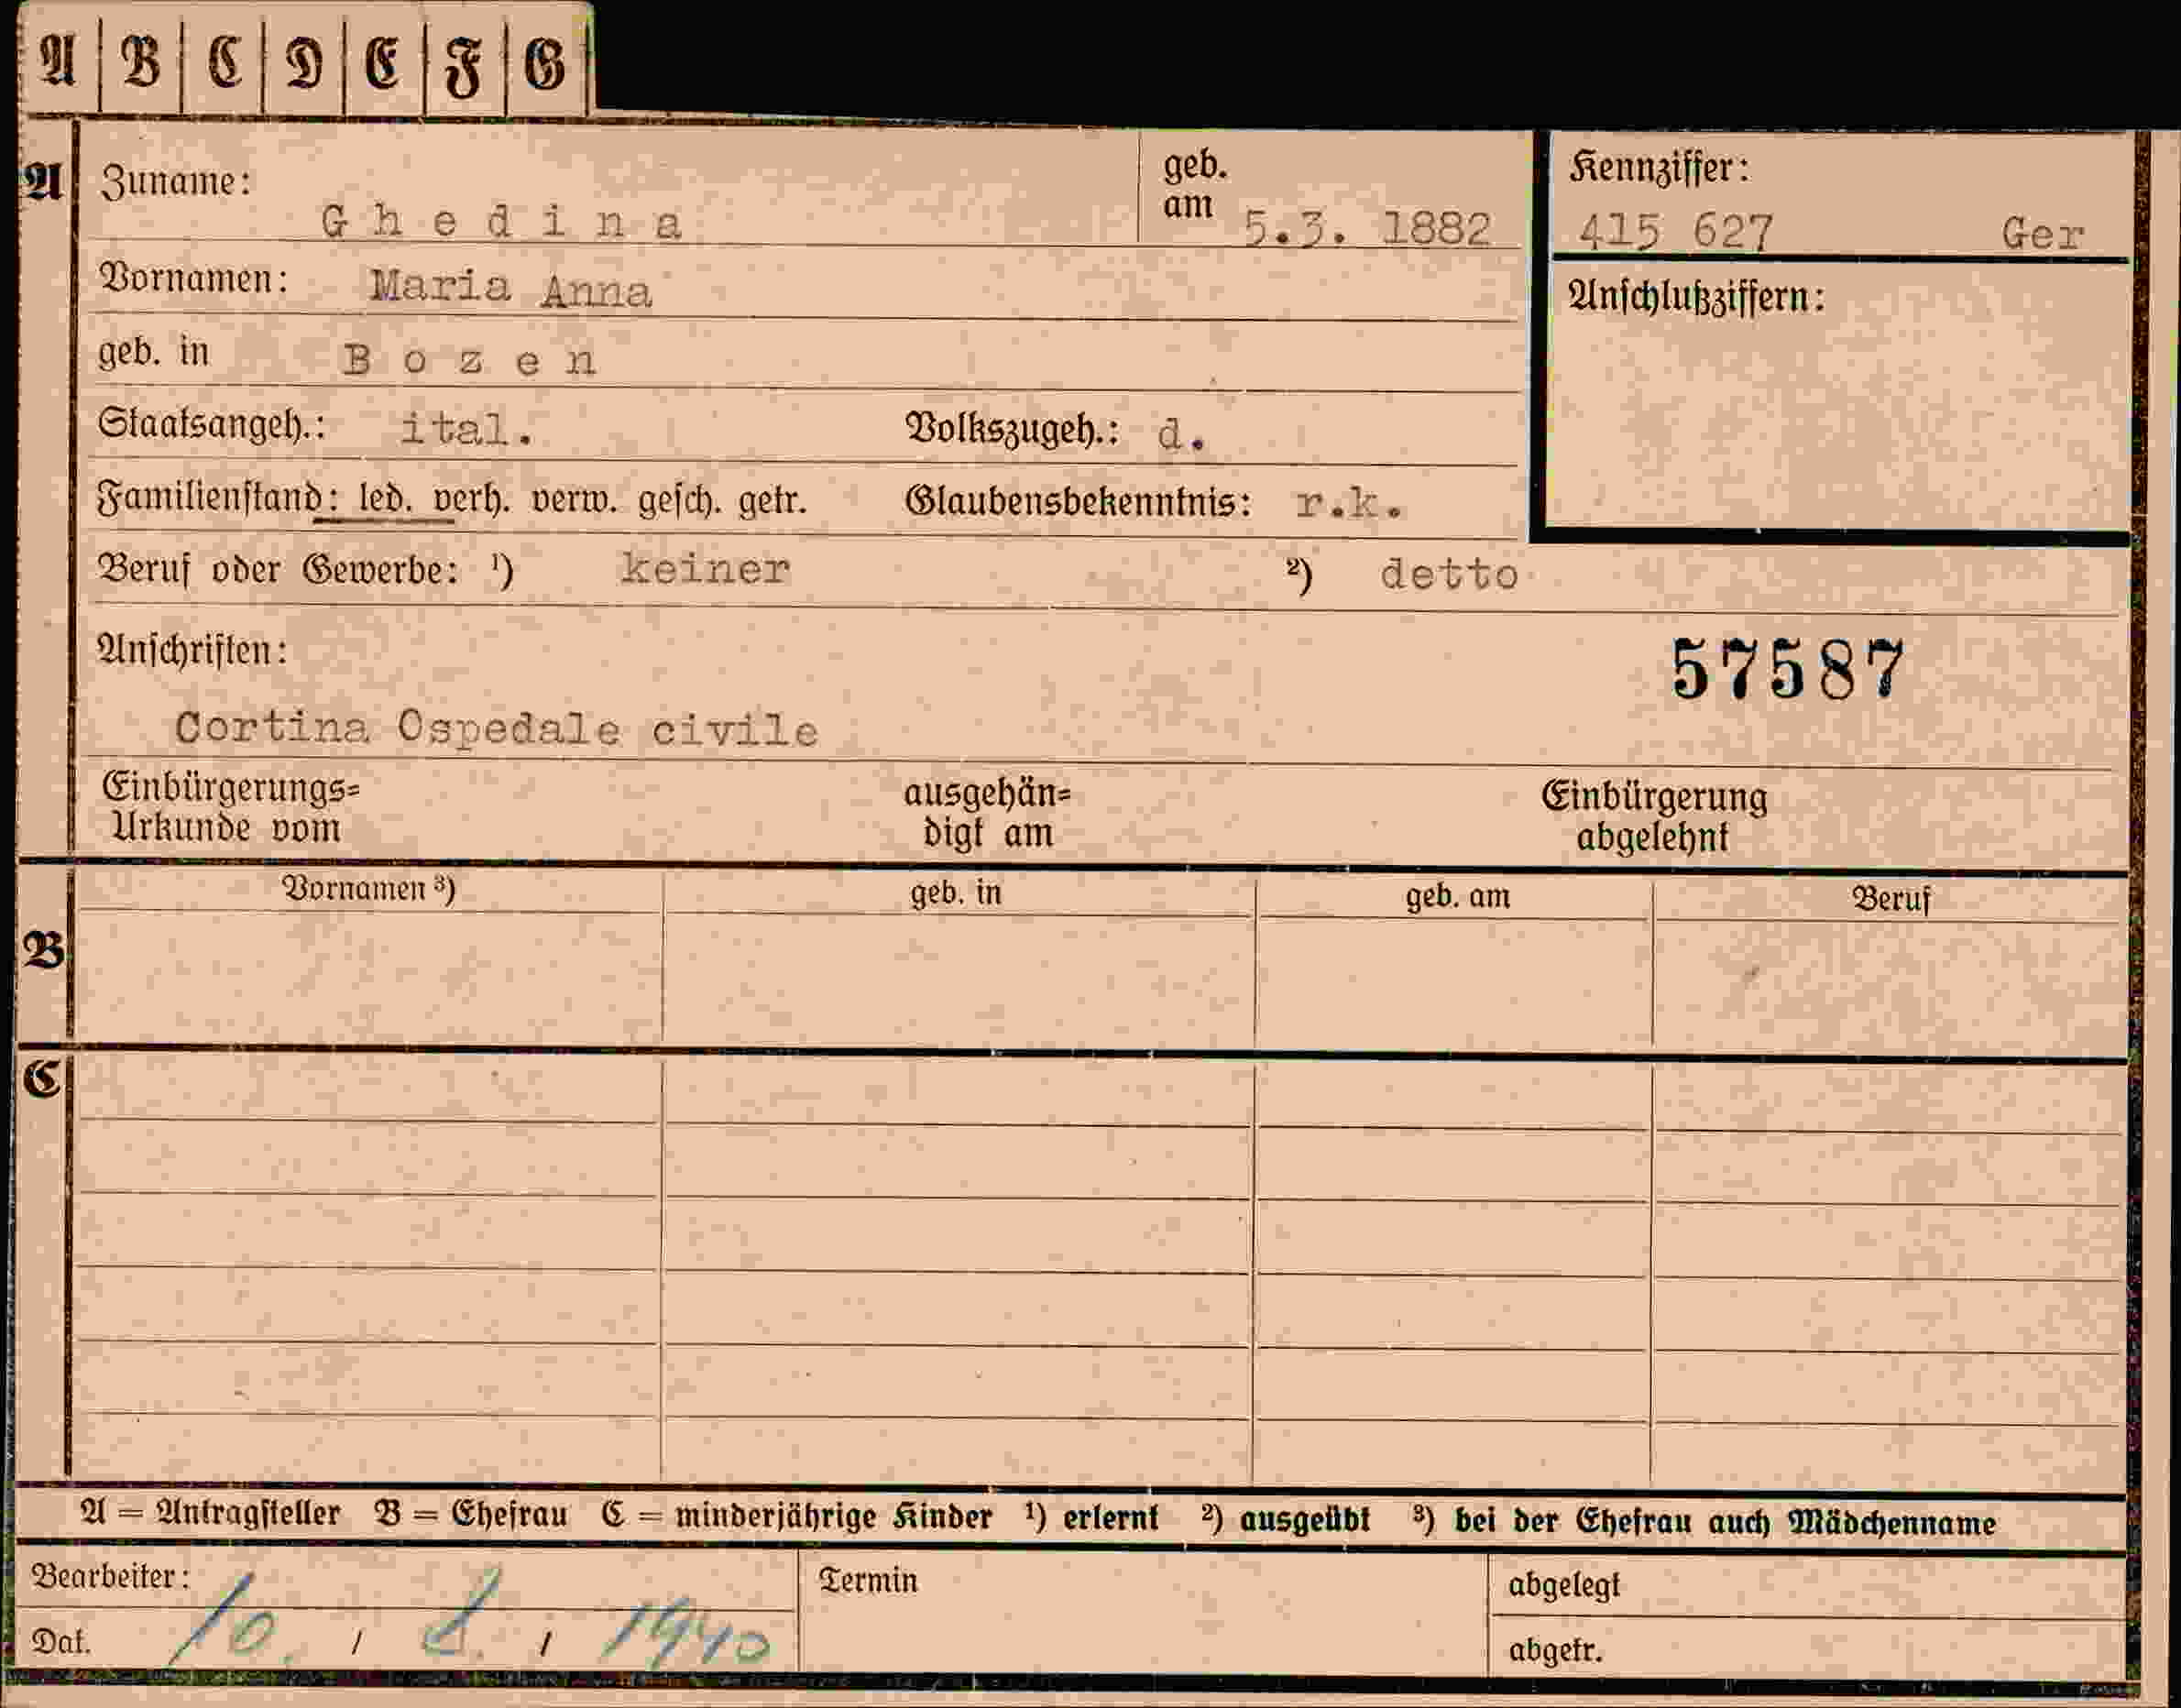 A B C D E F G
A Zuname: Ghedina geb. am 5.3. 1882 Kennziffer: 415 627 Ger
Vornamen: Maria Anna Anschlußziffern:
geb. in Bozen
Staatsangeh.: ital. Volkszugeh.: d.
Familienstand: led. verh. verw. gesch. getr. Glaubensbekenntnis: r.k.
Beruf oder Gewerbe: ¹) keiner ²) detto
Anschriften: 57587
Cortina Ospedale civile
Einbürgerungs= ausgehän= Einbürgerung
Urkunde vom digt am abgelehnt
Vornamen ³) geb. in geb. am Beruf
B
C
A = Antragsteller B = Ehefrau C = minderjährige Kinder ¹) erlernt ²) ausgeübt ³) bei der Ehefrau auch Mädchenname
Bearbeiter: Termin abgelegt
Dat. 10. / 8. / 1940 abgetr.